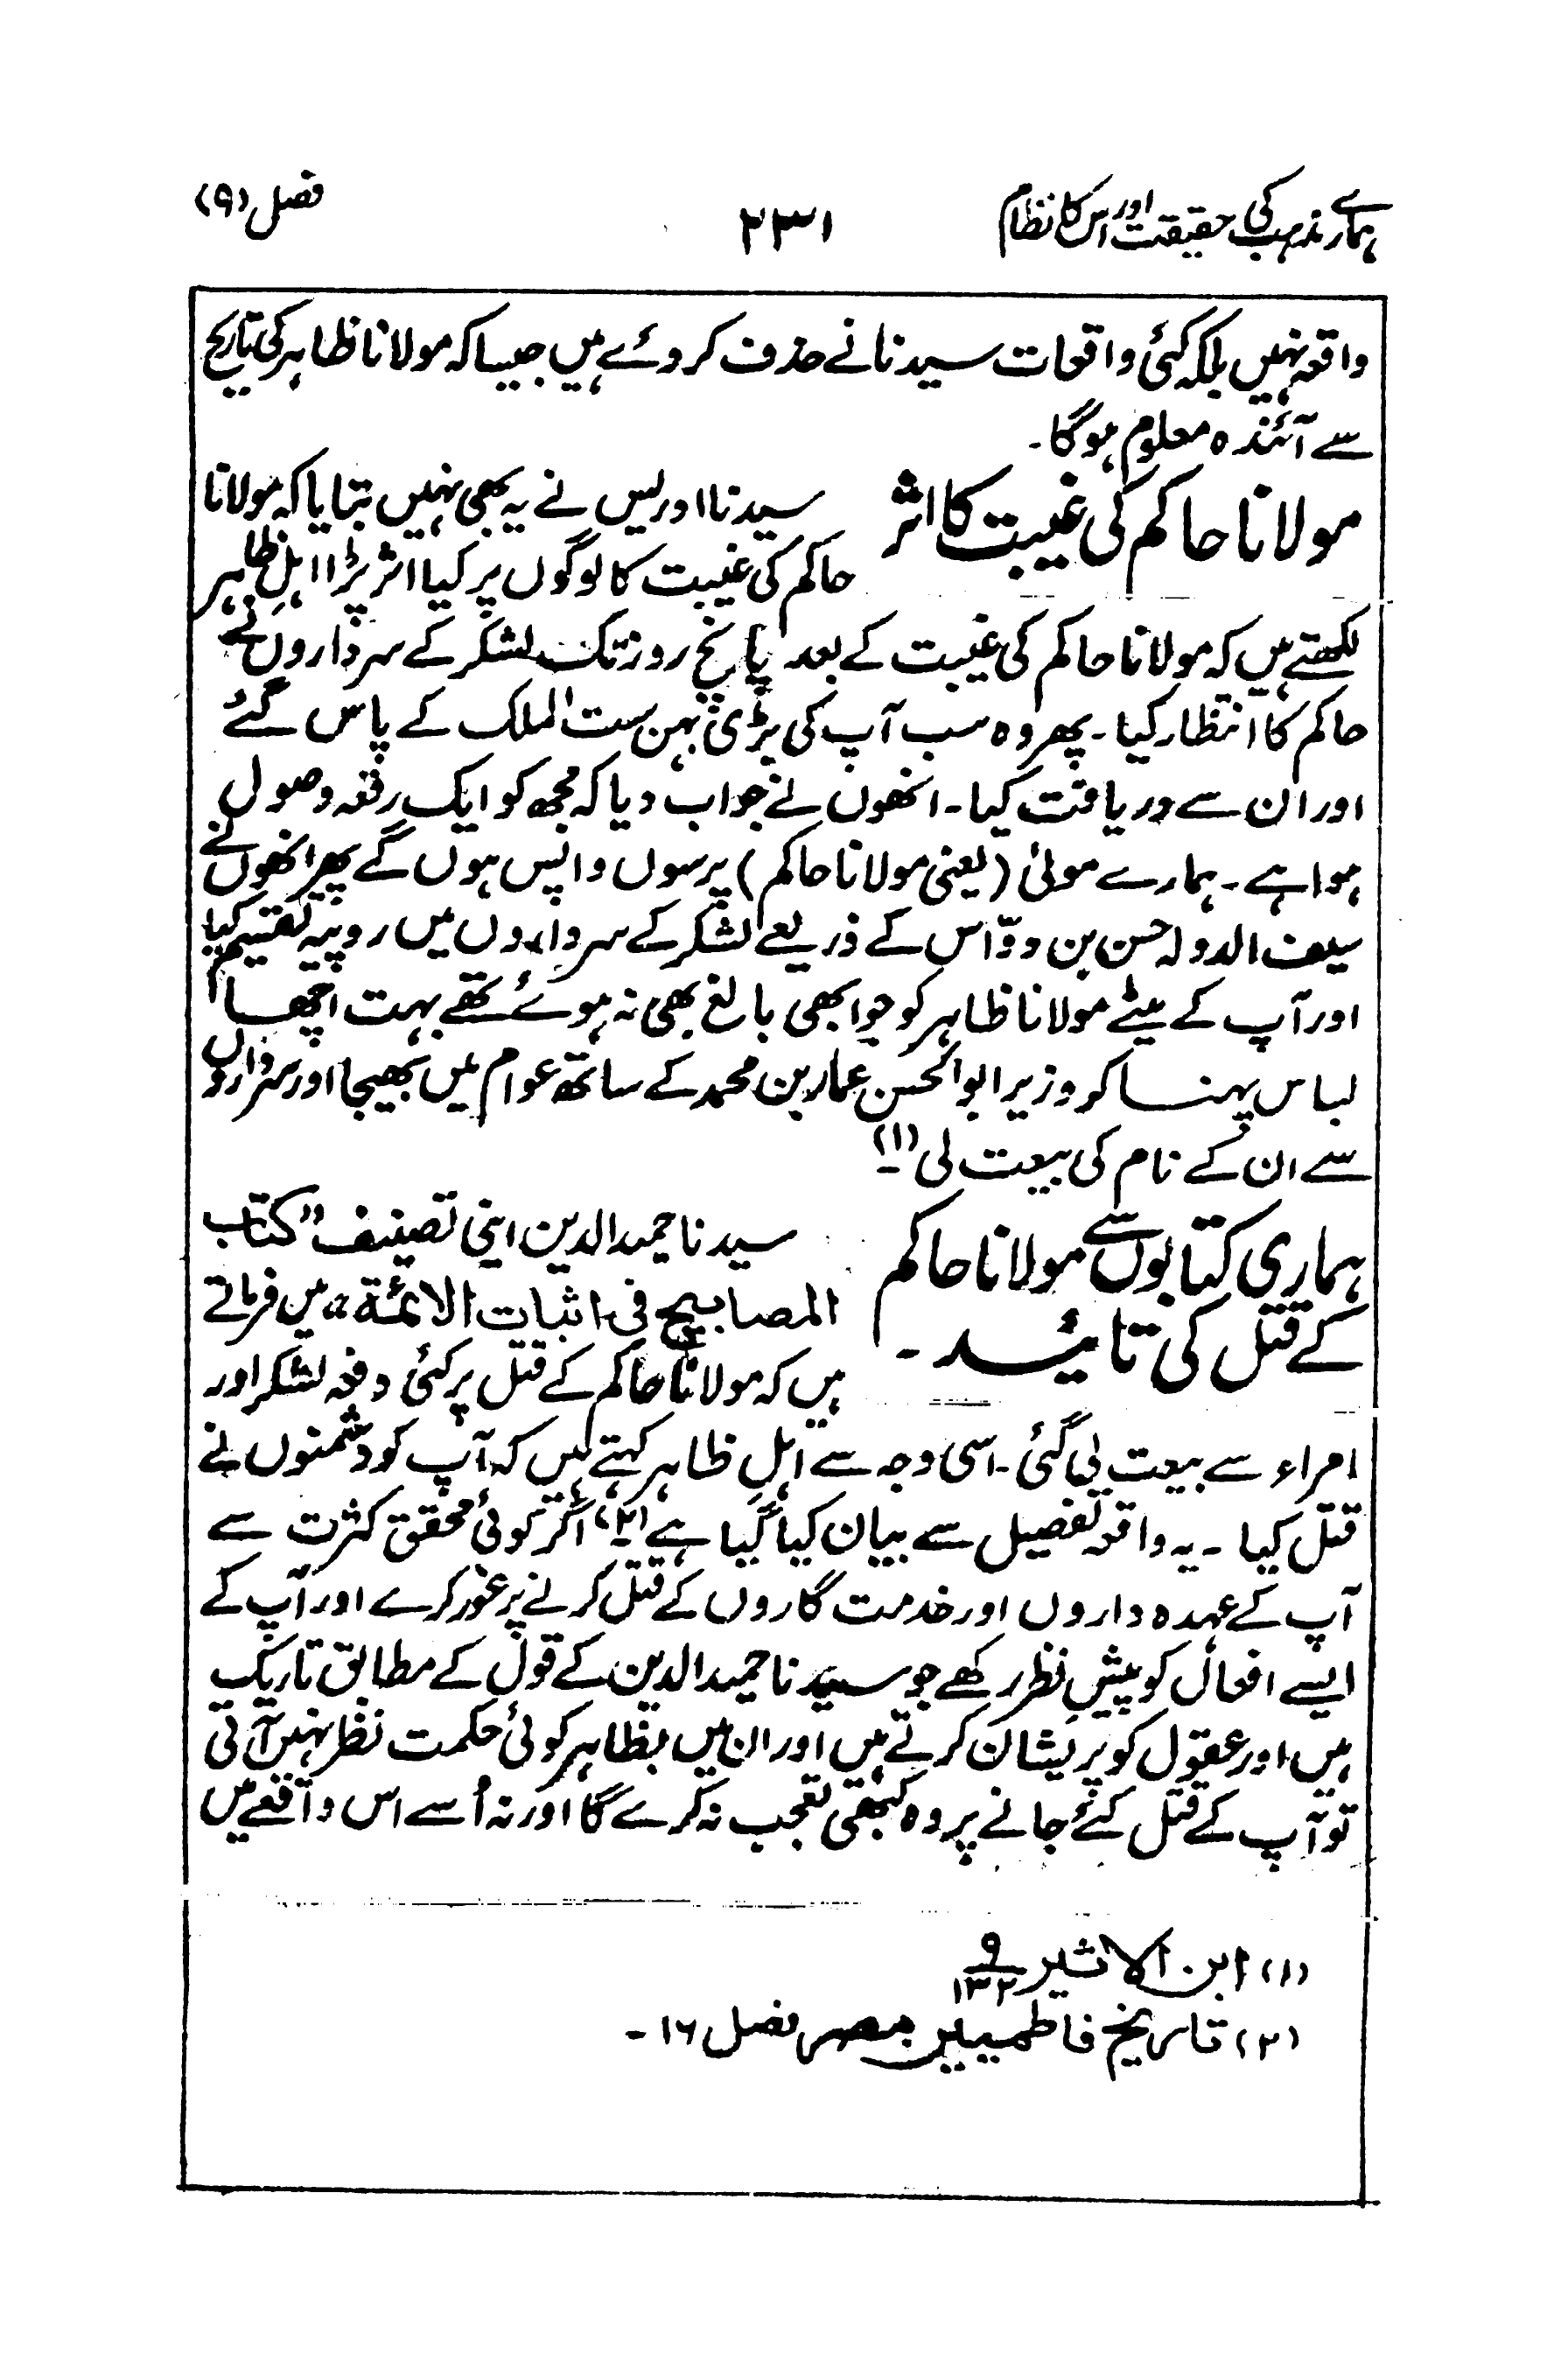 ہمارے مذہب کی حقیقت اور اس کا نظام
۲۳۱
فصل (۹)
واقعہ نہیں بلکہ کئی واقعات سیدنا نے حذف کر دئے ہیں جیسا کہ مولانا ظاہر کی تاریخ
سے آئندہ معلوم ہوگا۔
مولانا حاکم کی غیبت کا اثر
سیدنا ادریس نے یہ بھی نہیں بتایا کہ مولانا
حاکم کی غیبت کا لوگوں پر کیا اثر پڑا اہلِ ظاہر
لکھتے ہیں کہ مولانا حاکم کی غیبت کے بعد پانچ روز تک لشکر کے سرداروں نے
حاکم کا انتظار کیا۔ پھر وہ سب آپ کی بڑی بہن ست الملک کے پاس گئے
اور ان سے دریافت کیا۔ انھوں نے جواب دیا کہ مجھ کو ایک رقعہ وصول
ہوا ہے۔ ہمارے مولیٰ (یعنی مولانا حاکم) پرسوں واپس ہوں گے پھر انھوں نے
سیف الدولہ حسن بن دوّاس کے ذریعے لشکر کے سرداروں میں روپیہ تقسیم کیا
اور آپ کے بیٹے مولانا ظاہر کو جو ابھی بالغ بھی نہ ہوئے تھے بہت اچھا
لباس پہنا کر وزیر ابوالحسن عمار بن محمد کے ساتھ عوام میں بھیجا اور سرداروں
سے ان کے نام کی بیعت لی (۱)۔
ہماری کتابوں سے مولانا حاکم
کے قتل کی تائید۔
سیدنا حمید الدین اپنی تصنیف "کتاب
المصابیح فی اثبات الائمۃ" میں فرماتے
ہیں کہ مولانا حاکم کے قتل پر کئی دفعہ لشکر اور
امراء سے بیعت لی گئی۔ اسی وجہ سے اہلِ ظاہر کہتے ہیں کہ آپ کو دشمنوں نے
قتل کیا۔ یہ واقعہ تفصیل سے بیان کیا گیا ہے (۲)۔ اگر کوئی محقق کثرت سے
آپ کے عہدہ داروں اور خدمت گاروں کے قتل کرنے پر غور کرے اور آپ کے
ایسے افعال کو پیشِ نظر رکھے جو سیدنا حمید الدین کے قول کے مطابق تاریک
ہیں اور عقول کو پریشان کرتے ہیں اور ان میں بظاہر کوئی حکمت نظر نہیں آتی
تو آپ کے قتل کئے جانے پر وہ کبھی تعجب نہ کرے گا اور نہ اُسے اس واقعے میں
(۱) ابن الاثیر ۹/۱۳۲
(۲) تاریخ فاطمیین مصر فصل ۱۶۔